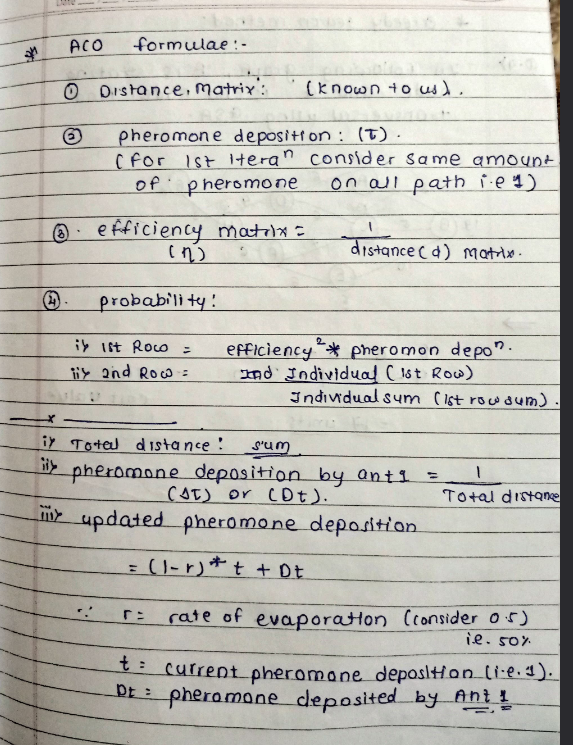 * ACO formulae:-
① Distance, Matrix: (known to us).
② pheromone deposition: (τ).
(for 1st iteraⁿ consider same amount
of pheromone on all path i.e 1)
③. efficiency matrix = 1
(η) distance(d) matrix.
④. probability:
i> 1st Row = efficiency²* pheromon depoⁿ.
ii> 2nd Row = Individual (1st Row)
Individual sum (1st row sum).
x
i> Total distance: sum
ii> pheromone deposition by ant 1 = 1
(Δτ) or (Dt). Total distance
iii> updated pheromone deposition
= (1-r)* t + Dt
∵ r = rate of evaporation (consider 0.5)
i.e. 50%
t = current pheromone deposition (i.e. 1).
Dt = pheromone deposited by Ant 1